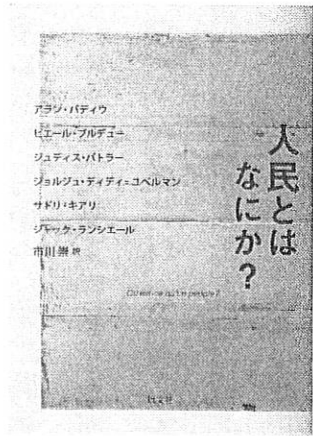 人民とは
なにか?
アラン・バディウ
ピエール・ブルデュー
ジュディス・バトラー
ジョルジュ・ディディ=ユベルマン
サドリ・キアリ
ジャック・ランシエール
市川崇 訳
Qu'est-ce qu'un peuple?